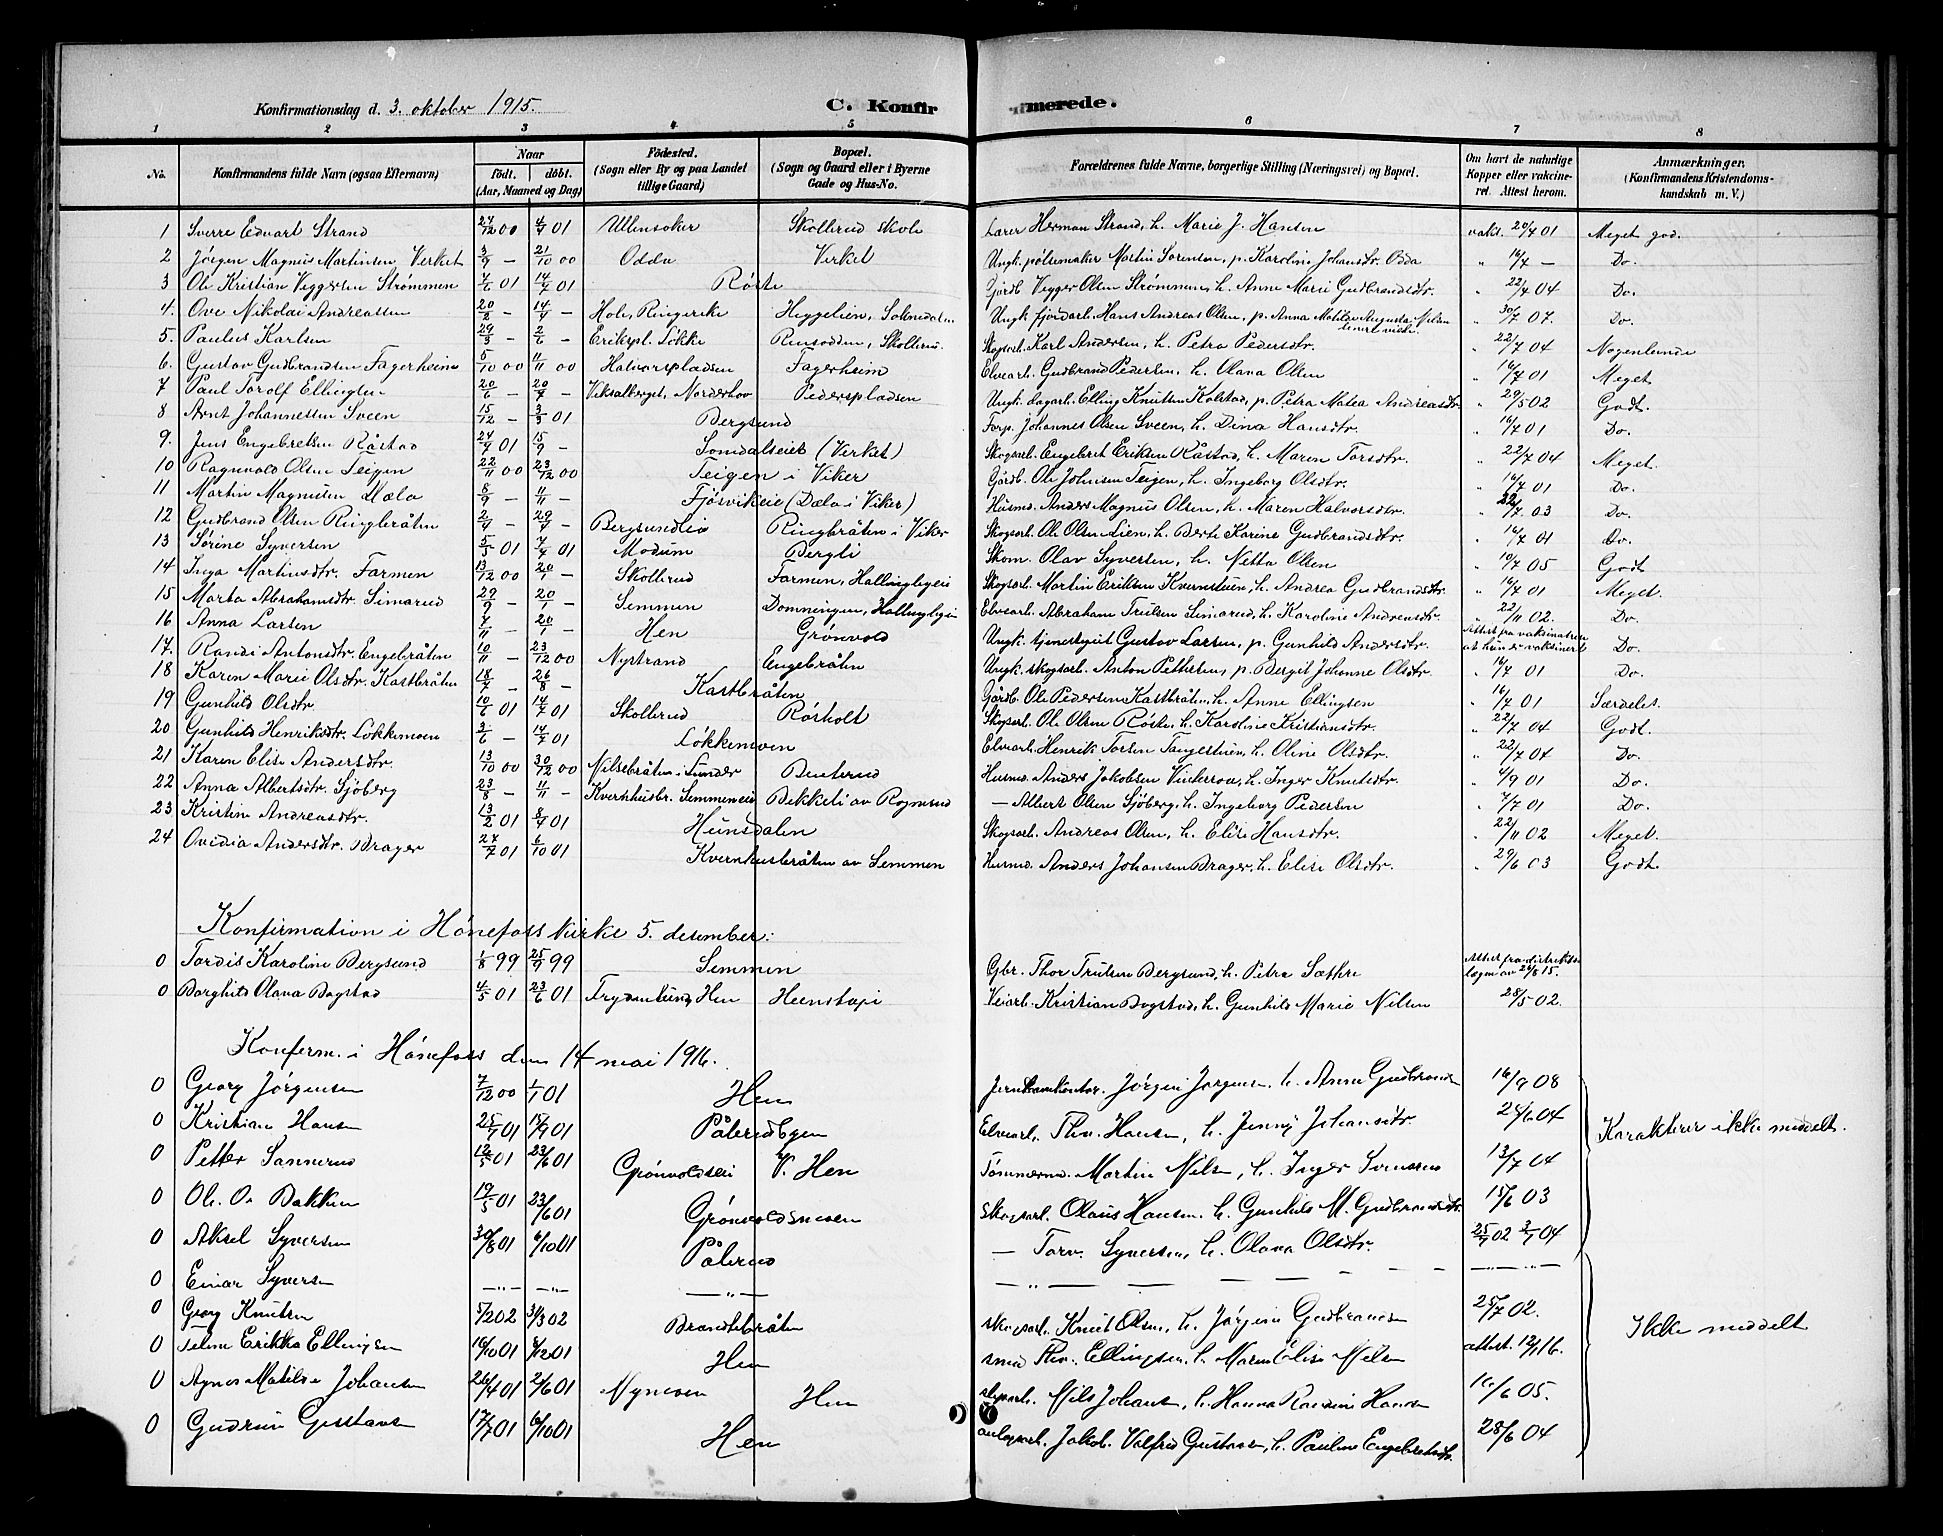 Konfirmationsdag d. 3. oktober 1915. C. Konfirmerede.
1 2 3 4 5 6 7 8
No. Konfirmandens fulde Navn (ogsaa Efternavn) Naar født. døbt. (Aar, Maaned og Dag) Fødested. (Sogn eller By og paa Landet tillige Gaard) Bopæl. (Sogn og Gaard eller i Byerne Gade og Hus-No. Forældrenes fulde Navne, borgerlige Stilling (Næringsvei) og Bopæl. Om havt de naturlige Kopper eller vakcineret. Attest herom. Anmærkninger. (Konfirmandens Kristendomskundskab m. V.)
1 Sverre Edvart Strand 27/12 00 4/4 01 Ullensaker Skollerud skole Lærer Herman Strand, h. Marie J. Hansen vaks. 20/4 01 Meget god.
2 Jørgen Magnus Martinsen Verket 3/9 — 21/10 00 Odda Verket Ungk. pølsemaker Martin Sørensen, p. Karoline Johansdtr. Odda " 16/7 — Do.
3 Ole Kristian Veggersen Strømmen 4/6 01 14/7 01 Røste Gårdb. Vegger Olsen Strømmen, h. Anne Marie Gudbrandsdtr. " 22/7 04 Do.
4. Ove Nikolai Andreassen 20/2 — 14/7 — Hole, Ringerike Heggelien, Ungk. fjordarb. Hans Andreas Olsen, p. Anna Matilde Augusta Nilsen " 30/7 07. Do.
5. Paulus Karlsen 29/3 — 2/6 — Erikspl. Løkke Rensodden, Skollerud. Skogsarb. Karl Andersen, h. Petra Pedersdtr. " 22/7 04 Nogenlunde
6. Gustav Gudbrandsen Fagerheim 5/10 00 11/11 00 Halvorspladsen Fagerheim Elvearb. Gudbrand Pedersen, h. Olava Olsen " 16/7 01 Meget
7 Paul Torolf Ellingsen 20/6 — 20/7 — Viksalberget, Norderhov Pederspladsen Ungk. dagarb. Elling Knutsen Kolstad, p. Petra Matea Andreasdtr. " 29/5 02 Godt.
8 Arnt Johannessen Sveen 15/12 — 3/3 01 Bergsund Forp. Johannes Olsen Sveen, h. Dina Hansdtr. " 16/7 01 Do.
9. Jens Engebretsen Råstad 24/7 01 15/9 — Somdalseiet (Verket) Skogsarb. Engebret Eriksen Råstad, h. Maren Torsdtr. " 22/7 04 Meget.
10 Ragnvald Olsen Teigen 22/11 00 23/12 00 Teigen i Viker Gårdb. Ole Johnsen Teigen, h. Ingeborg Olsdtr. " 16/7 01 Do.
11 Martin Magnussen Dæla 8/9 — 11/11 — Fjøsvikeie (Dæla i Viker) Husmd. Anders Magnus Olsen, h. Maren Halvorsdtr. " 22/7 03 Do.
12 Gudbrand Olsen Ringbråten 2/7 — 29/7 — Bergsundlia Ringbråten i Viker Skogsarb. Ole Olsen Lien, h. Berte Karine Gudbrandsdtr. " 16/7 01 Do.
13 Sørine Syversen 5/3 01 7/4 01 Modum Bergli Skom. Olav Syversen, h. Netta Olsen " 10/7 05 Godt
14 Inga Martinsdtr. Farmen 13/12 00 20/1 — Skollerud Farmen, Hallingbyeie Skogsarb. Martin Eriksen Kvernstuen, h. Andrea Gudbrandsdtr. " 16/7 01 Meget.
15 Marta Abrahamsdtr. Simarud 29/9 — 20/1 — Semmen Domningen, Hallingbyeie Elvearb. Abraham Trulsen Simarud, h. Karoline Andreasdtr. " 22/11 02. Do.
16 Anna Larsen 7/11 — 20/1 — Hen Grønvold Ungk. tjenestegut Gustav Larsen, p. Gunhild Andersdtr. Attest fra vaksinatøren at hun er vaksinert Do.
17. Randi Antonsdtr. Engebråten 10/11 — 23/12 00 Nystrand Engebråten Ungk. skogsarb. Anton Pettersen, p. Bergit Johanne Olsdtr. " 16/7 01 Do.
18 Karen Marie Olsdtr. Kastbråten 18/7 — 26/8 — Kastbråten Gårdb. Ole Pedersen Kastbråten, h. Anne Ellingsen " 16/7 01 Særdeles.
19 Gunhild Olsdtr. 10/6 01 14/7 01 Skollerud Rørholt Skogsarb. Ole Olsen Røste, h. Karoline Kristiansdtr. " 22/7 04 Godt.
20 Gunhild Henriksdtr. Løkkemoen 3/6 — 14/7 01 Løkkemoen Elvearb. Henrik Torsen Tangestuen, h. Oline Olsdtr. " 22/7 04 Do.
21 Karen Elise Andersdtr. 13/10 00 30/12 00 Nilsebråten i Lunder Benterud Husmd. Anders Jakobsen Vinterroa, h. Inger Knutsdtr. " 4/9 01 Do.
22 Anna Albertsdtr. Sjøberg 23/8 — 11/11 — Kvernhusbr. Semmeneie Bekkeli av Rognerud — Albert Olsen Sjøberg, h. Ingeborg Pedersen " 7/7 01 Do.
23 Kristine Andreasdtr. 13/2 01 8/4 01 Hunsdalen Skogsarb. Andreas Olsen, h. Elise Hansdtr. " 22/11 02 Meget.
24 Ovidia Andersdtr. Brager 27/7 01 6/10 01 Kvernhusbråten av Semmen Husmd. Anders Johansen Brager, h. Elise Olsdtr. " 29/6 03 Godt.
Konfirmation i Hønefoss kirke 5. desember:
0 Tordis Karoline Bergsund 1/8 99 25/9 99 Semmen Gbr. Thor Trulsen Bergsund, h. Petra Sæthre Attest fra distriktslægen av 24/8 15.
0 Borghild Olava Bogstad 4/5 01 23/6 01 Frydenlund, Hen Heenstopi Veiarb. Kristian Bogstad, h. Gunhild Marie Nilsen 28/5 02.
Konferm. i Hønefoss den 14 mai 1916.
0 Georg Jørgensen 7/12 00 1/1 01 Hen Jørgen Jørgensen h. Anna Gudbrandsen 16/9 08
0 Kristian Hansen 25/7 01 15/9 01 Pålerudbyen Elvearb. Thv. Hansen, h. Jenny Johansdtr. 24/6 04 Karakterer ikke meddelt.
0 Petter Sannerud 12/5 01 23/6 01 Grønvoldseie V. Hen Tømmermd. Martin Nilsen, h. Inger 13/7 04
0 Ole O. Bakken 19/5 01 23/6 01 Grønvoldsmoen Skogsarb. Olaus Hansen h. Gunhild M. Gudbrandsdtr. 15/6 03
0 Aksel Syversen 30/8 01 6/10 01 Pålerud — Torv. Syversen, h. Olava Olsdtr. 25/7 02 2/7 04
0 Einar Syversen — " — — " — — " — — " — — " —
0 Georg Knutsen 5/2 02 31/3 02 Brandtebråten Skogsarb. Knut Olsen, h. Jørgine Gudbrandsen 25/7 02.
0 Erikka Ellingsen 16/10 01 8/12 01 Hen Smed Thv. Ellingsen, h. Maren Elise Nilsen attest. 12/1 16. Ikke meddelt
0 Agnes Matilde Johansen 26/4 01 2/6 01 Mymoen Hen Nils Johansen, h. Hanna Randine Hansen 16/6 05.
0 Gudrun Gustavsen 17/7 01 6/10 01 Hen Jakob Valfred Gustavsen, h. Pauline Engebretsdtr. 28/6 04